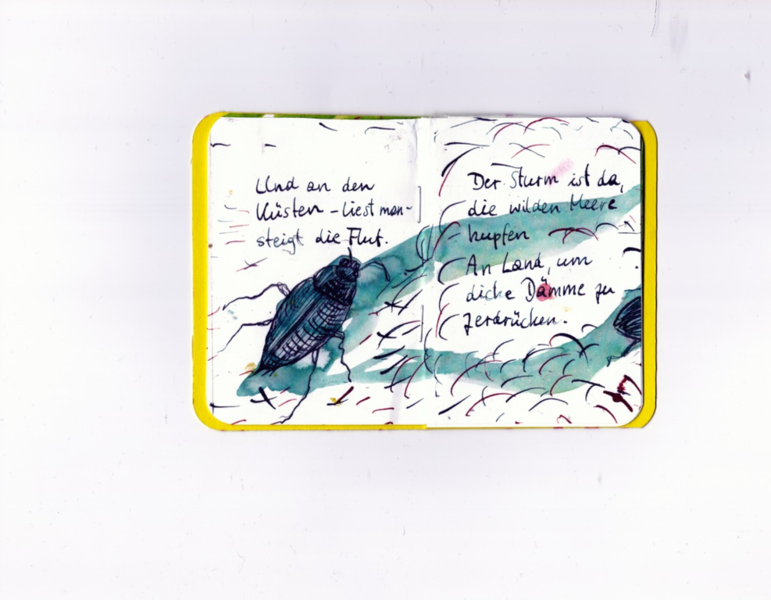 Und an den
Küsten – liest man –
steigt die Flut.
Der Sturm ist da,
die wilden Meere
hupfen
An Land, um
dicke Dämme zu
zerdrücken.